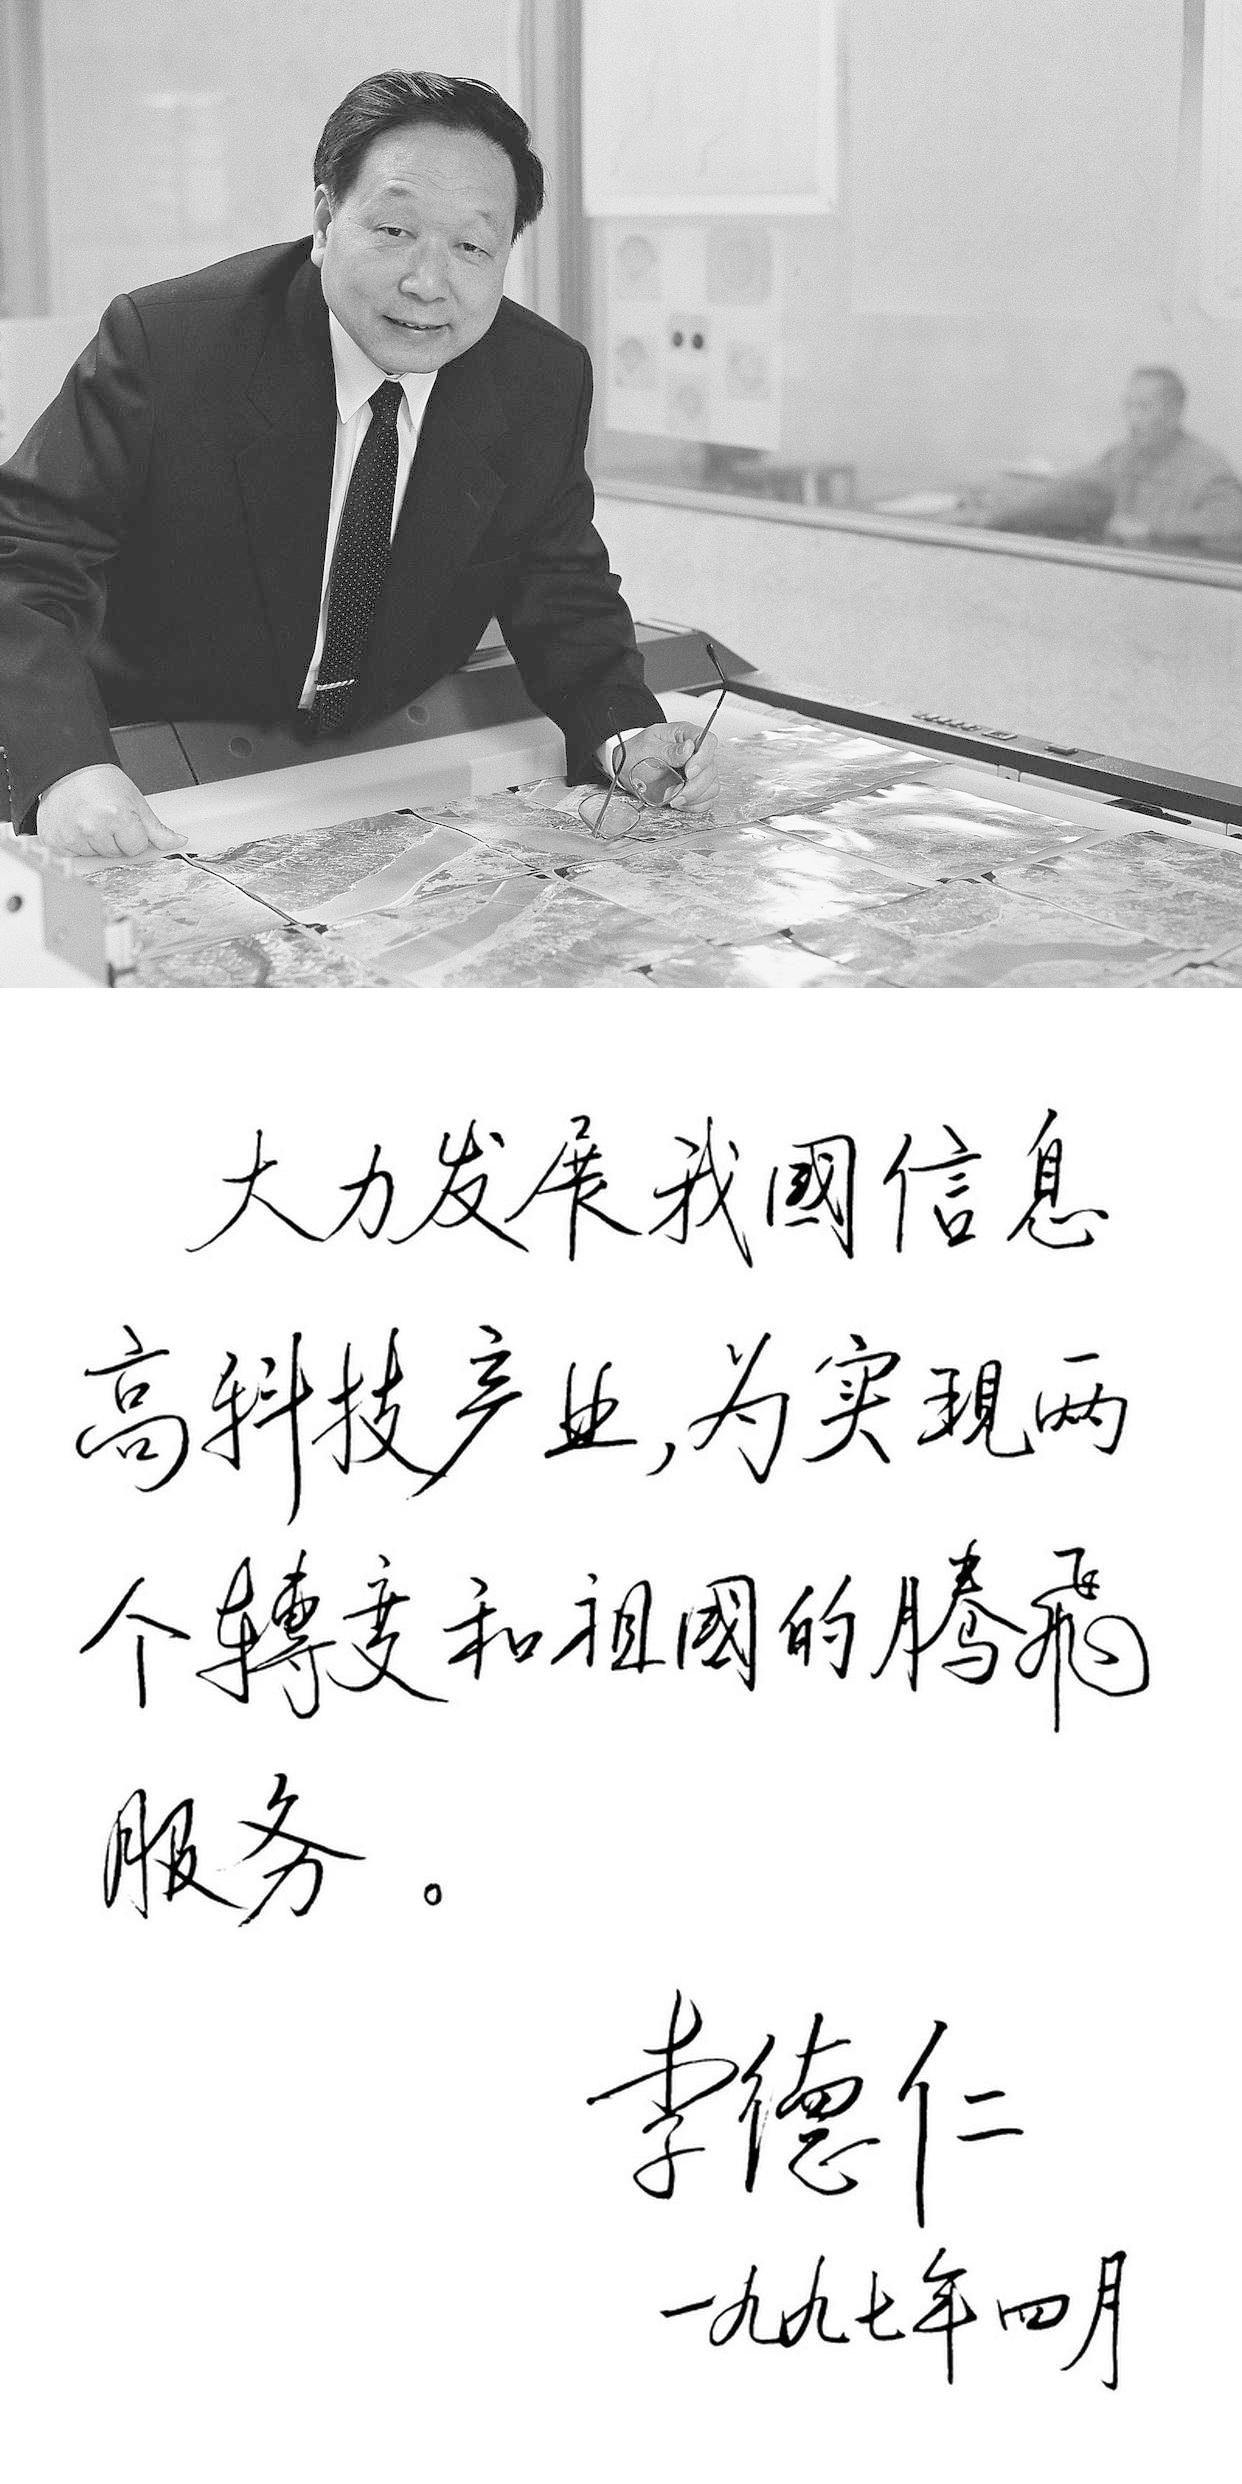 大力发展我國信息
高科技产业,为实現两
个轉变和祖國的腾飛
服务。
李德仁
一九九七年四月